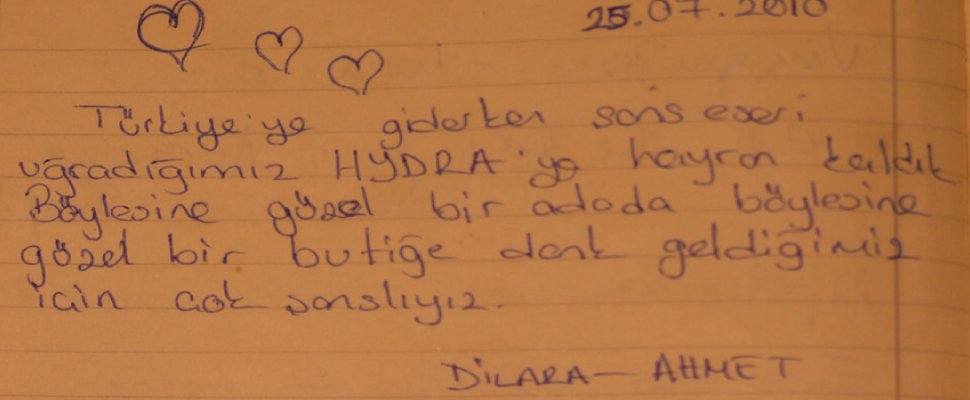 25.07.2010
Türkiye'ye giderken şans eseri
uğradığımız HYDRA'ya hayran kaldık
Böylesine güzel bir adada böylesine
güzel bir butiğe denk geldiğimiz
için çok şanslıyız.
DİLARA - AHMET